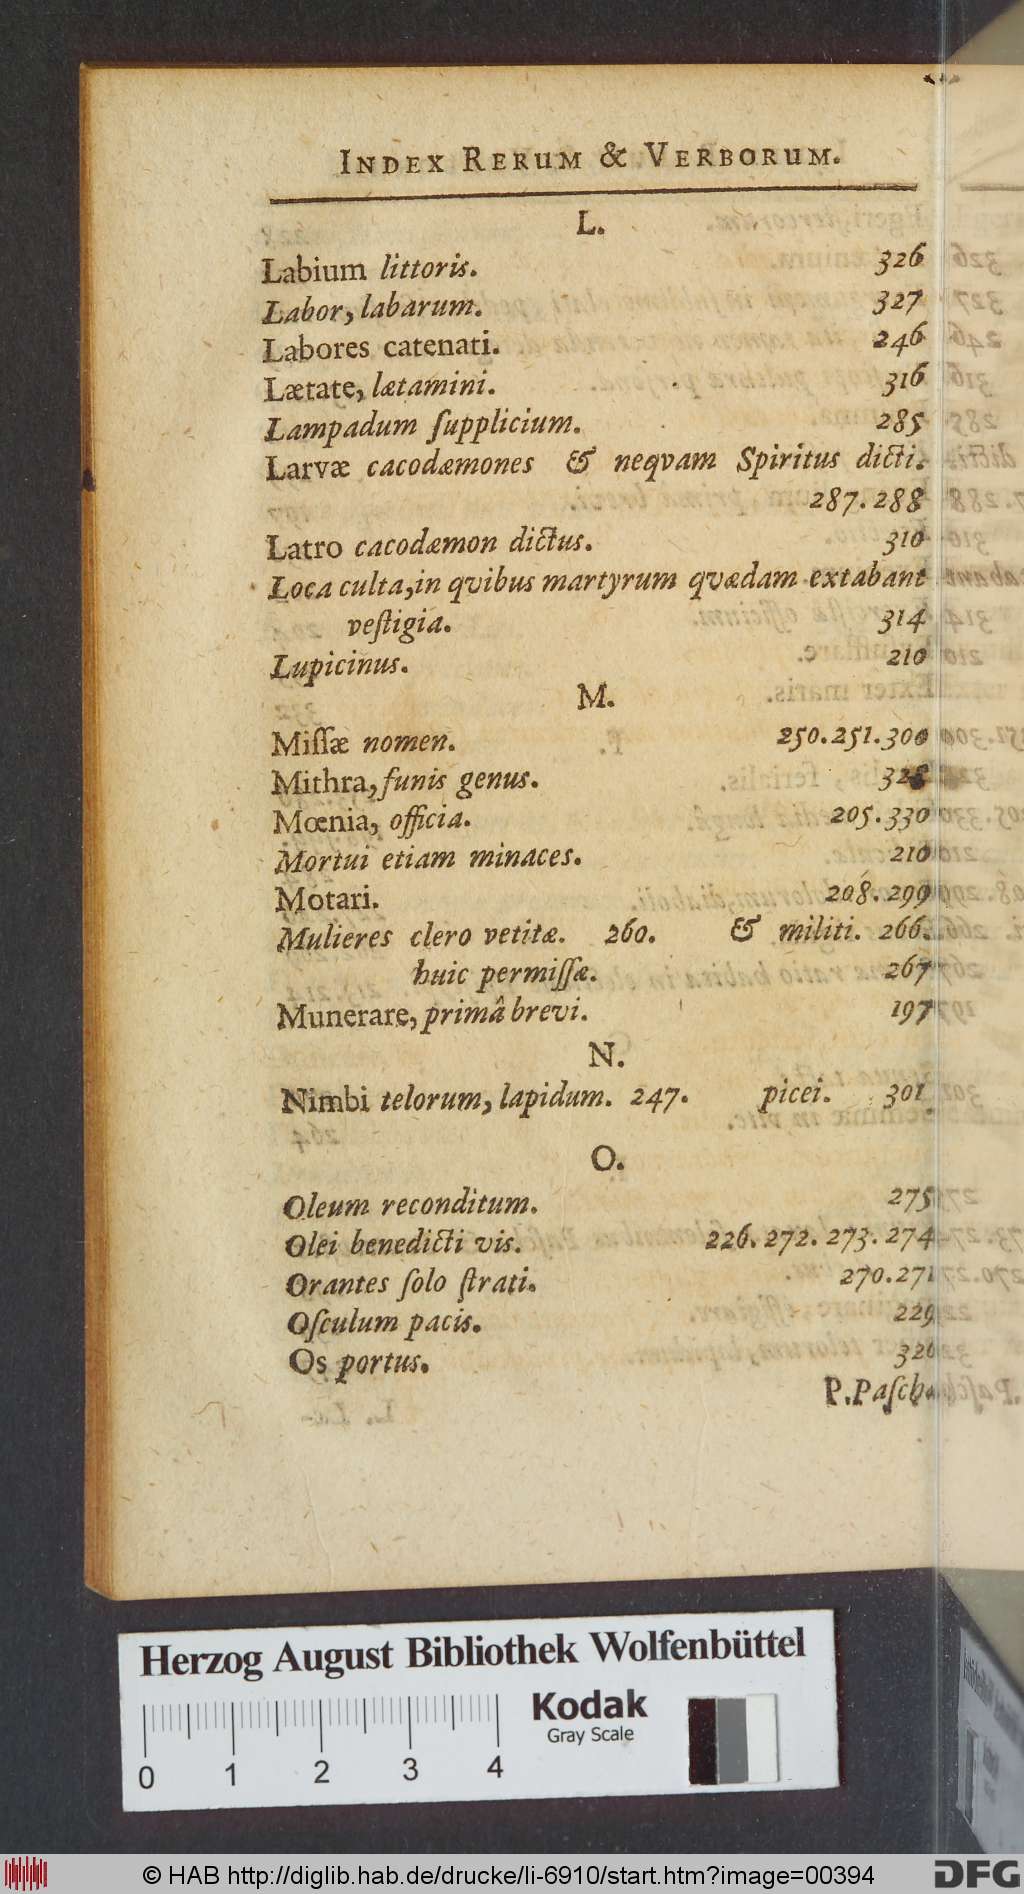 INDEX RERUM & VERBORUM.
L.
Labium littoris. 326
Labor, labarum. 327
Labores catenati. 246
Lætate, lætamini. 316
Lampadum ſupplicium. 285
Larvæ cacodæmones & neqvam Spiritus dicti.
287. 288
Latro cacodæmon dictus. 310
Loca culta, in qvibus martyrum qvædam extabant
veſtigia. 314
Lupicinus. 210
M.
Miſſæ nomen. 250. 251. 300
Mithra, funis genus. 328
Mœnia, officia. 205. 330
Mortui etiam minaces. 210
Motari. 208. 299
Mulieres clero vetitæ. 260. & militi. 266.
huic permiſſæ. 267
Munerare, primâ brevi. 197
N.
Nimbi telorum, lapidum. 247. picei. 301
O.
Oleum reconditum. 275
Olei benedicti vis. 226. 272. 273. 274
Orantes ſolo ſtrati. 270. 271
Oſculum pacis. 229
Os portus. 326
P. Paſcha
Herzog August Bibliothek Wolfenbüttel
Kodak
Gray Scale
0 1 2 3 4
© HAB http://diglib.hab.de/drucke/li-6910/start.htm?image=00394
DFG